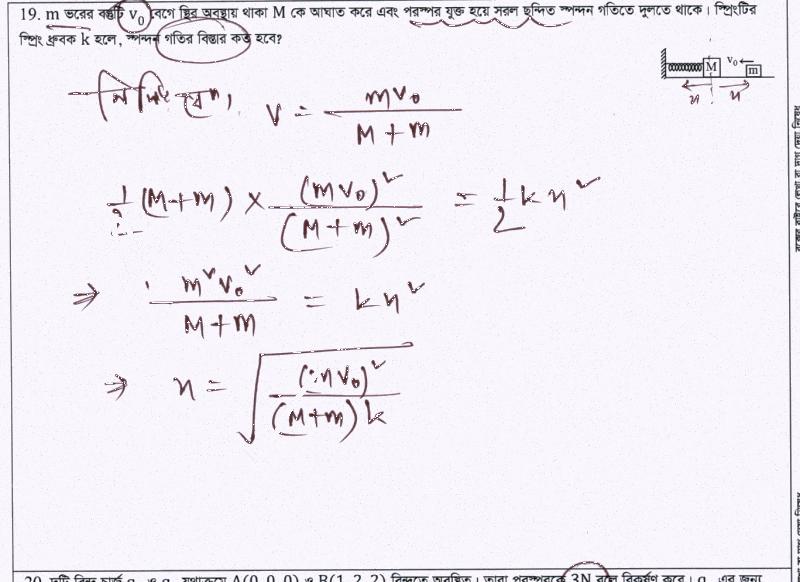 19. m ভরের বস্তুটি v₀ বেগে স্থির অবস্থায় থাকা M কে আঘাত করে এবং পরস্পর যুক্ত হয়ে সরল ছন্দিত স্পন্দন গতিতে দুলতে থাকে। স্প্রিংটির
স্প্রিং ধ্রুবক k হলে, স্পন্দন গতির বিস্তার কত হবে?
M v₀ m
x x
v = mv₀ / (M+m)
½ (M+m) × (mv₀)² / (M+m)² = ½ k x²
⇒ m²v₀² / (M+m) = k x²
⇒ x = √((mv₀)² / ((M+m) k))
20. দুটি বিন্দু চার্জ q q যথাক্রমে A(0, 0, 0) ও B(1, 2, 2) বিন্দুতে অবস্থিত। তারা পরস্পরকে 3N বলে বিকর্ষণ করে। q এর জন্য